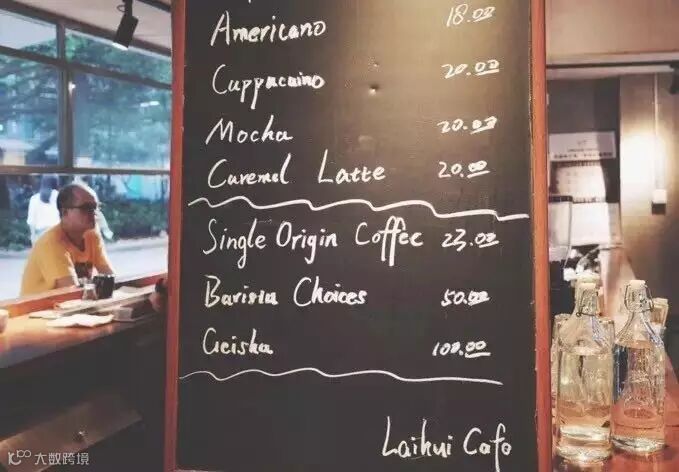 Americano 18.00
Cuppucuino 20.00
Mocha 20.00
Caremel Latte 20.00
Single Origin Coffee 23.00
Barista Choices 50.00
Geisha 100.00
Laihui Cafe
大数跨境